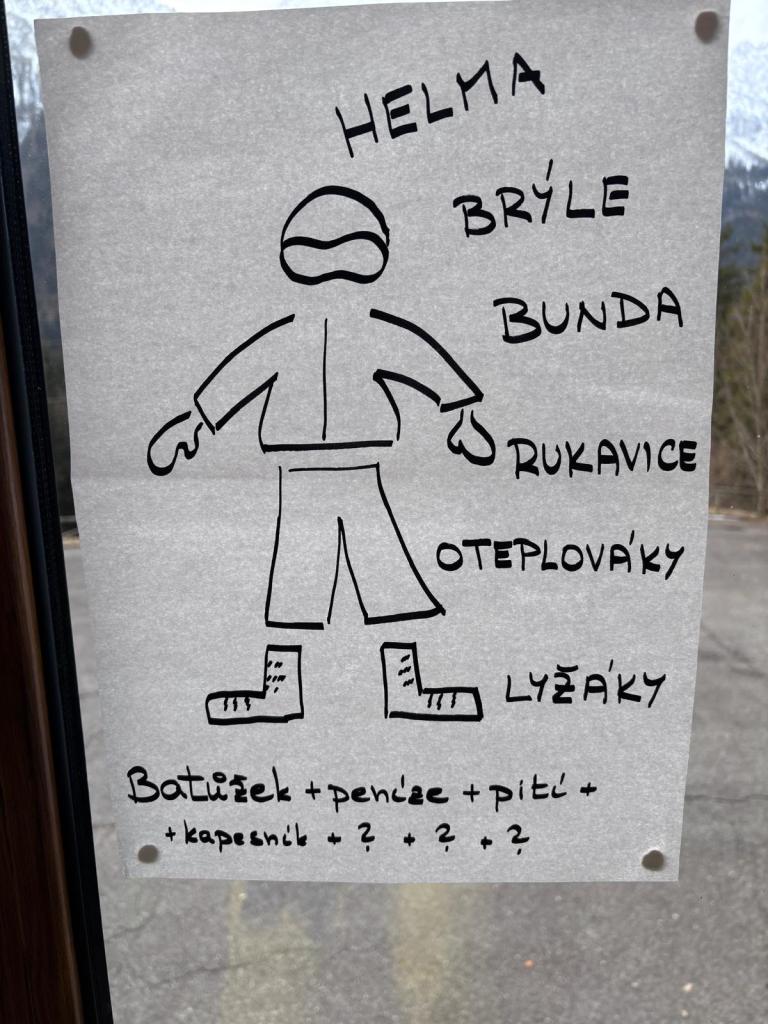 HELMA
BRÝLE
BUNDA
RUKAVICE
OTEPLOVÁKY
LYŽÁKY
Batůžek + peníze + pití +
+ kapesník + ? + ? + ?